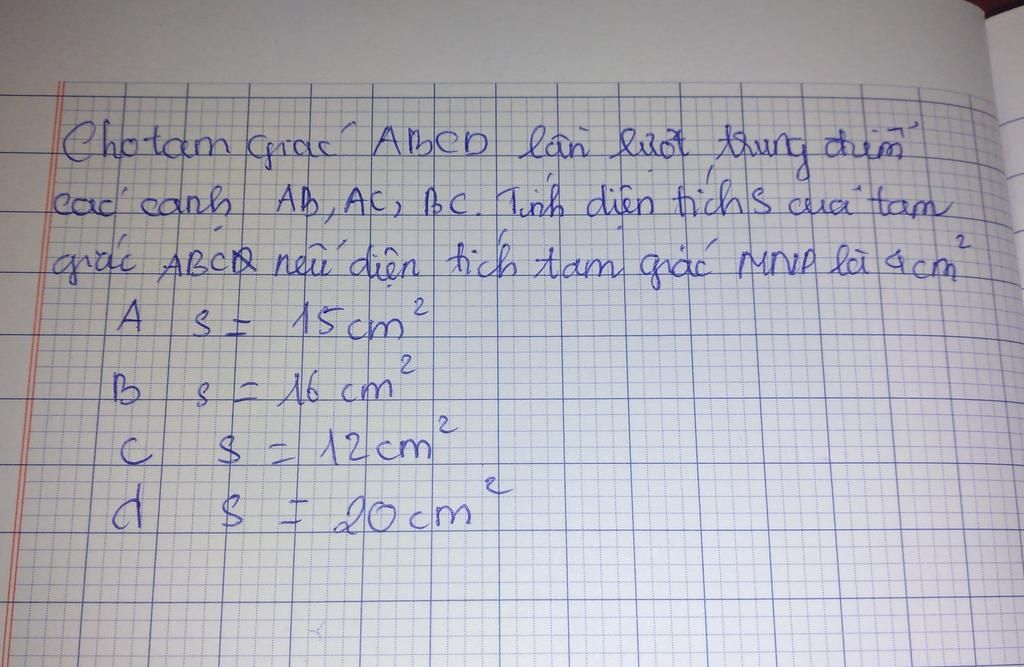 Cho tam giác ABCD lần lượt trung điểm
các cạnh AB, AC, BC. Tính diện tích S của tam
giác ABCD nếu diện tích tam giác MNP là 4cm²
A S = 15cm²
B S = 16 cm²
C S = 12cm²
d S = 20cm²